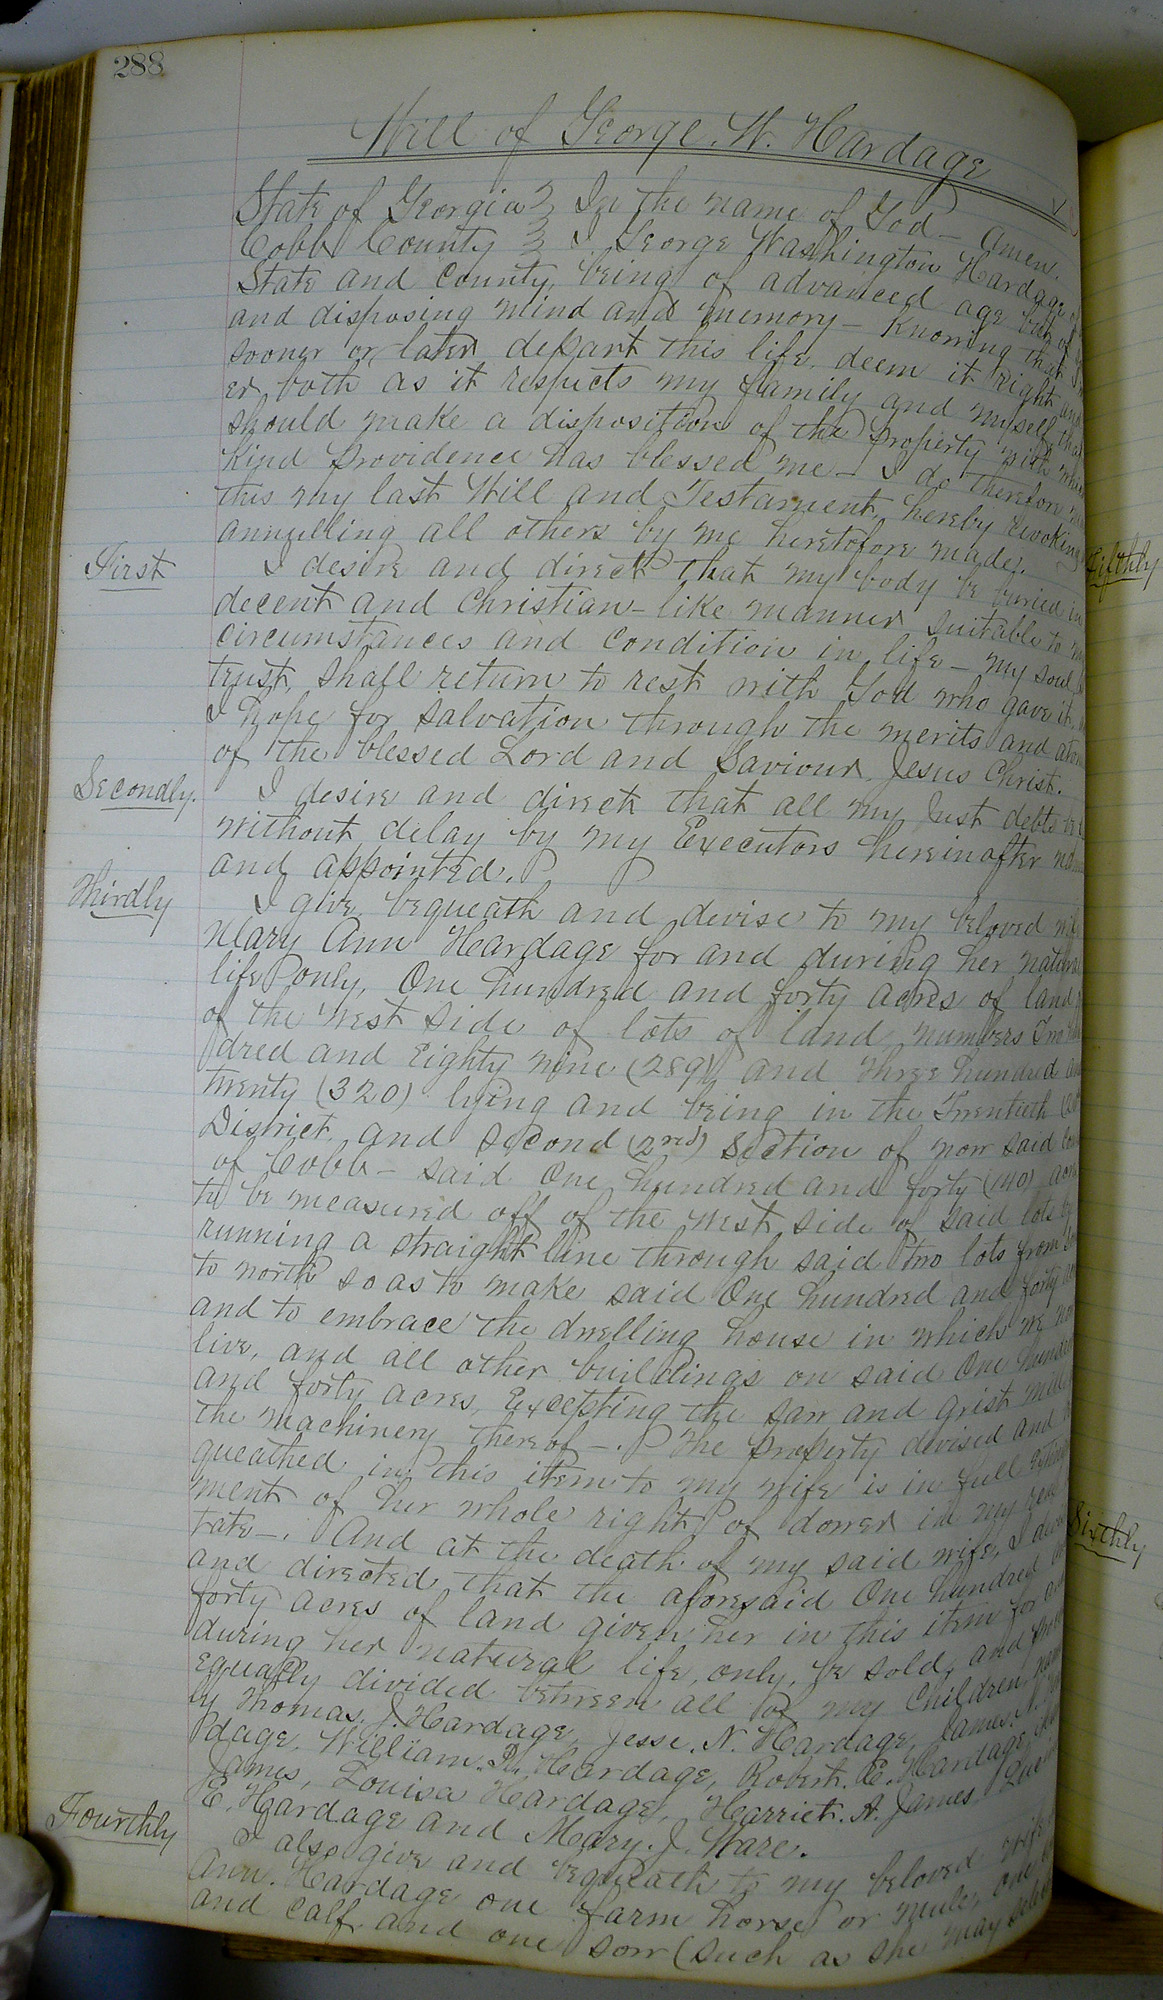 288
Will of George. W. Hardage
State of Georgia } In the name of God - Amen.
Cobb County } I George Washington Hardage of
State and County, being of advanced age but of
and disposing mind and memory - knowing that I
sooner or later depart this life, deem it right and
er both as it respects my family and myself that
should make a disposition of the property with which
Kind Providence has blessed me - I do therefore
this my last Will and Testament, hereby revoking
annulling all others by me heretofore made.
First
I desire and direct that my body be buried in
decent and Christian-like manner suitable to my
circumstances and condition in life - my soul, I
trust, shall return to rest with God who gave it, as
I hope for salvation through the merits and
of the blessed Lord and Saviour Jesus Christ.
Secondly.
I desire and direct that all my Just debts be
without delay by my Executors hereinafter
and appointed.
Thirdly
I give, bequeath and devise to my beloved wife
Mary Ann Hardage for and during her natural
life only, One hundred and forty acres of land
of the West side of lots of land numbers Two
dred and Eighty nine (289) and Three hundred and
twenty (320) lying and being in the Twentieth (20th
District and Second (2nd) Section of now said
of Cobb - said One hundred and forty (140) acres
to be measured off of the West side of said lots by
running a straight line through said two lots from
to north so as to make said One hundred and forty
and to embrace the dwelling house in which we now
live, and all other buildings on said One hundred
and forty acres, Excepting the saw and grist mill
the machinery thereof -. The property devised and
queathed in this item to my wife is in full
ment of her whole right of dower in my real
tate -. And at the death of my said wife, I
and directed that the aforesaid One hundred
forty acres of land given her in this item for and
during her natural life, only, be sold, and
equally divided between all of my Children
ly Thomas. J. Hardage, Jesse. N. Hardage, James. N.
dage. William. Hardage, Robert. E. Hardage
James, Louisa Hardage, Harriet. A. James
E. Hardage and Mary. J. Ware.
Fourthly
I also give and bequeath to my beloved wife
Ann. Hardage one farm horse or mule, one
and calf and one sow (such as she may select
Fifthly
Sixthly